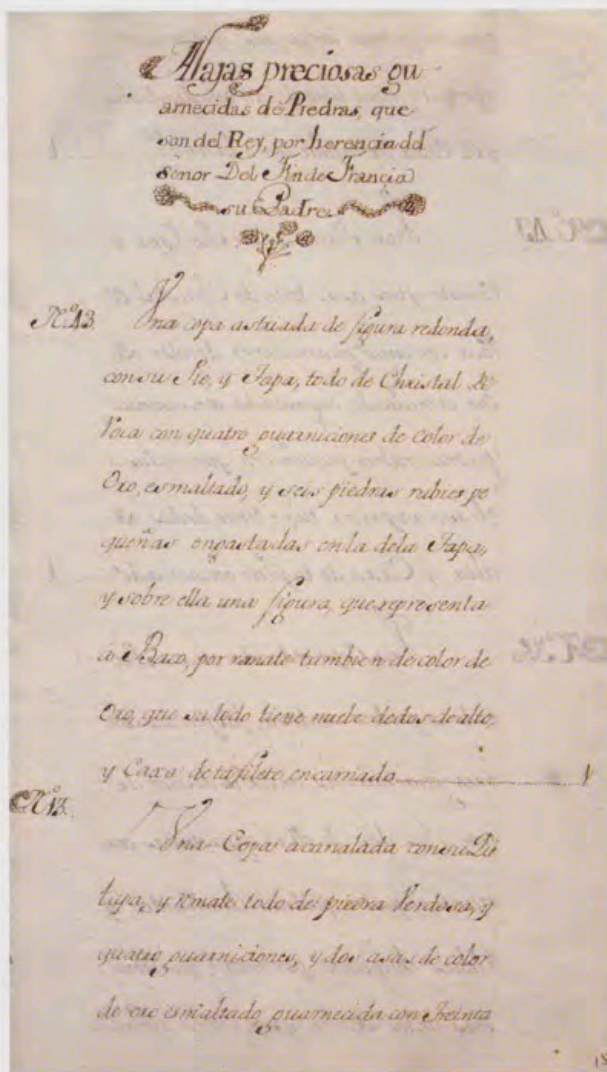 Alajas preciosas gu
arnecidas de Piedras, que
son del Rey, por herencia del
señor Delfin de Francia
su Padre
N.º 43. Una copa astriada de figura redonda,
con su Pie, y Tapa, todo de Christal de
Roca con quatro guarniciones de color de
Oro, esmaltado, y seis piedras rubies pe
queñas engastadas en la de la Tapa,
y sobre ella una figura, que representa
à Baco, por remate tambien de color de
Oro, que su todo tiene nuebe dedos de alto,
y Caxa de tafilete encarnado 1
N.º 13. Una Copa acanalada con su Pie
tapa, y remate todo de piedra Verdosa, y
quatro guarniciones, y dos asas de color
de oro esmaltado, guarnecida con treinta